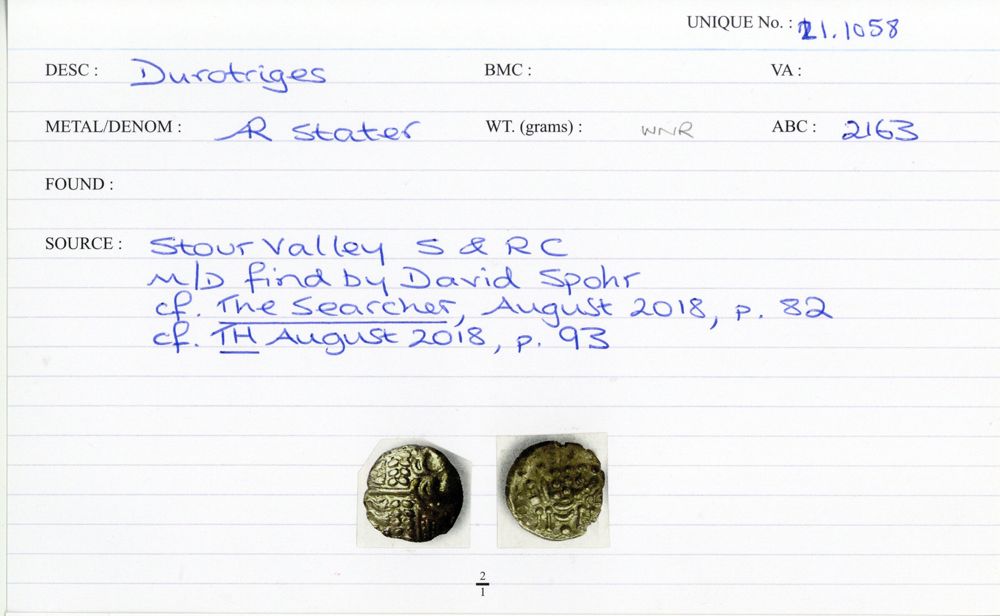 UNIQUE No. : 21.1058
DESC : Durotriges BMC : VA :
METAL/DENOM : AR Stater WT. (grams) : WNR ABC : 2163
FOUND :
SOURCE : Stour Valley S & R C
M/D find by David Spohr
cf. The Searcher, August 2018, p. 82
cf. TH August 2018, p. 93
2
1